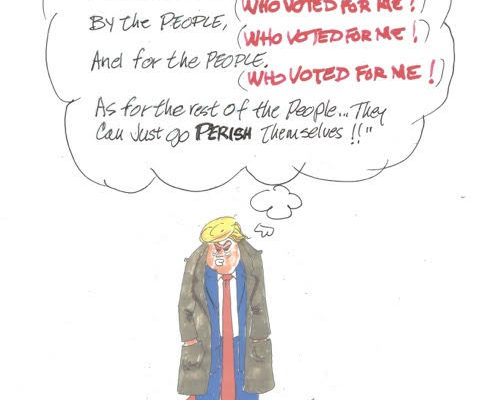 (WHO VOTED FOR ME!)
By the PEOPLE, (WHO VOTED FOR ME!)
And for the PEOPLE.
(WHO VOTED FOR ME!)
As for the rest of the People... They
Can Just go PERISH Themselves!!"